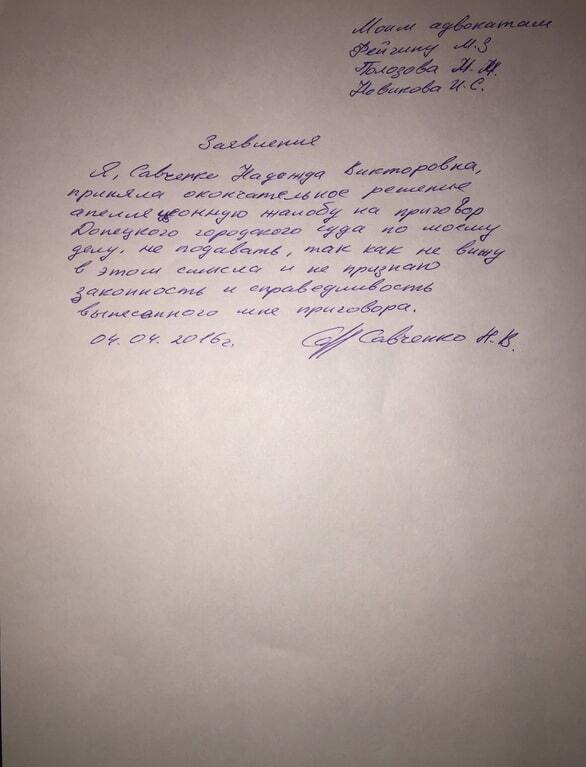 Моим адвокатам
Фейгину М.З
Полозова Н.Н.
Новикова И.С.
Заявления
Я, Савченко Надежда Викторовна,
приняла окончательное решение
апеляционную жалобу на приговор
Донецкого городского суда по моему
делу, не подавать, так как не вижу
в этом смысла и не признаю
законность и справедливость
вынесенного мне приговора.
04.04.2016г.
Савченко Н.В.